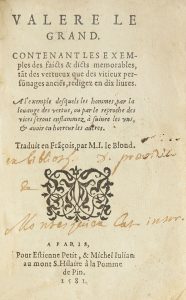 VALERE LE
GRAND.
CONTENANT LES EXEM-
ples des faicts & dicts memorables,
tãt des vertueux que des vitieux per-
sonnages anciẽs, redigez en dix liures.
A l'exemple desquels les hommes par la
louange des vertus, ou par le reproche des
vices seront enflammez, à suiure les vns,
& auoir en horreur les autres.
Traduit en Frãçois, par M.I. le Blond.
A PARIS,
Pour Estienne Petit, & Michel Iulian
au mont S. Hilaire à la Pomme
de Pin.
1581.